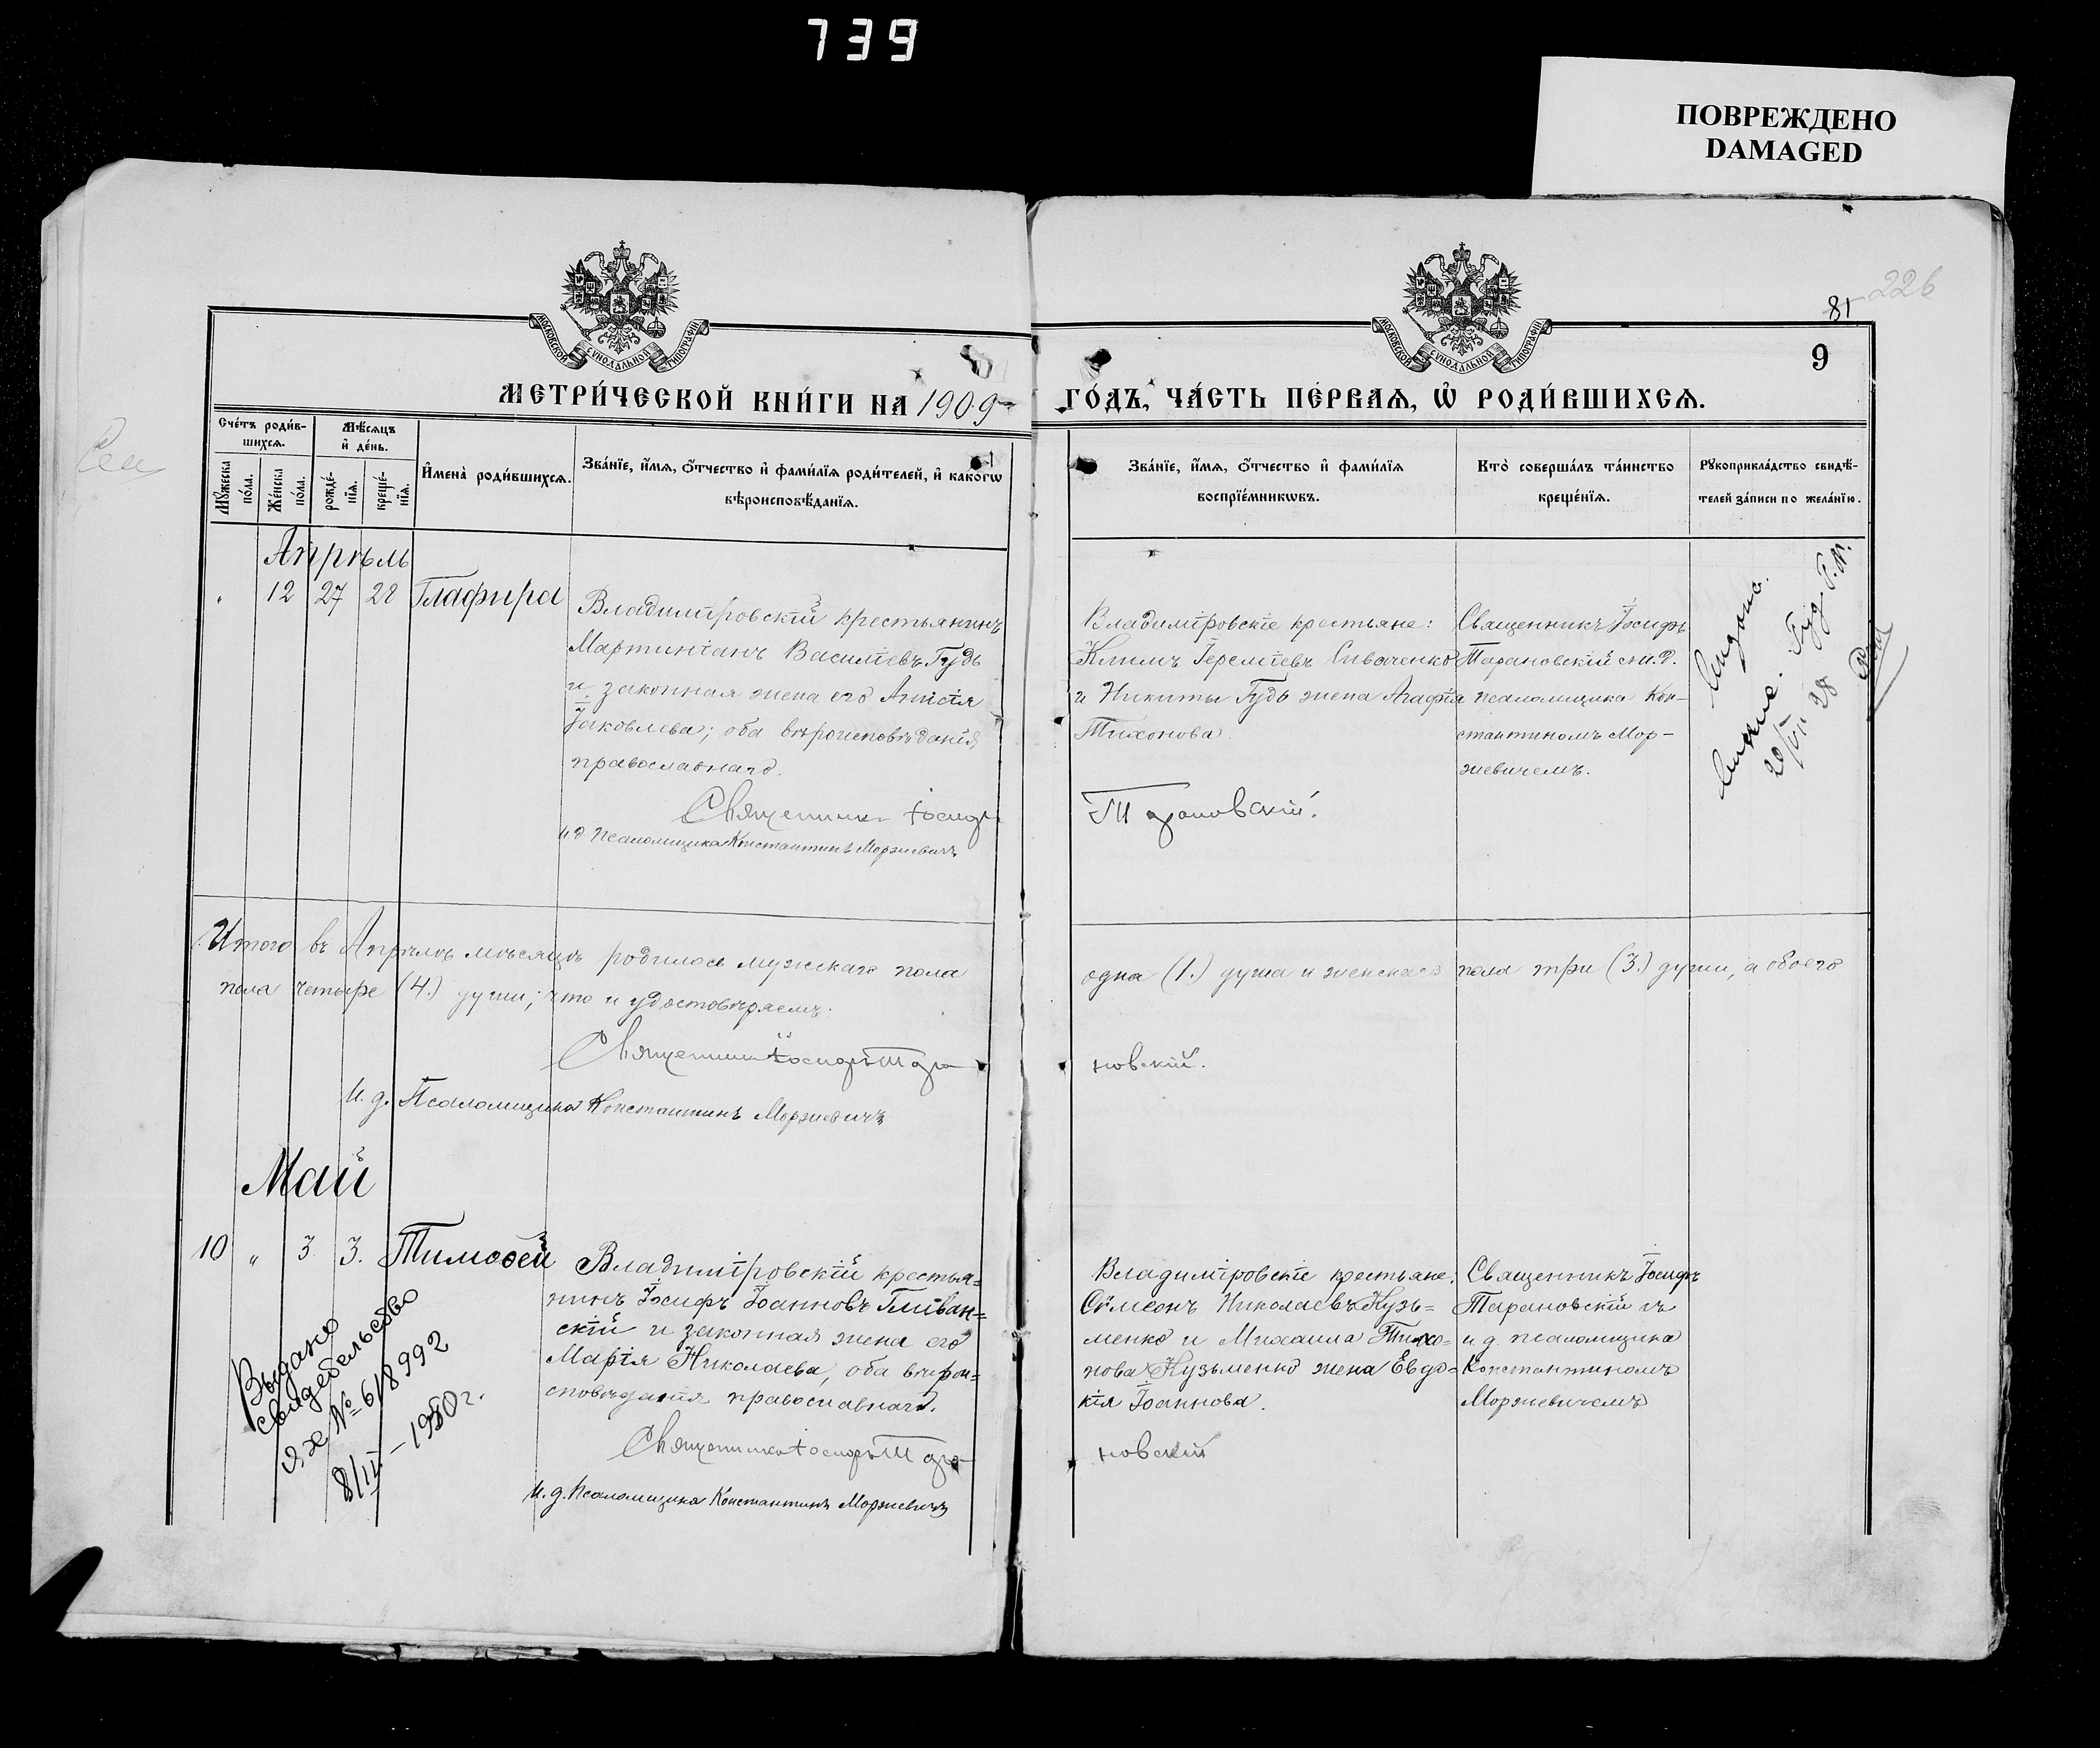 739
ПОВРЕЖДЕНО
DAMAGED
226
81
9
МОСКОВСКОЙ СѴНОДАЛЬНОЙ ТИПОГРАФІИ
МОСКОВСКОЙ СѴНОДАЛЬНОЙ ТИПОГРАФІИ
МЕТРИ́ЧЕСКОЙ КНИ́ГИ НА 1909
ГО́ДЪ, ЧА́СТЬ ПЕ́РВАѦ, Ѡ҆ РОДИ́ВШИХСѦ.
Сче́тъ роди́в-
шихсѧ.
Мꙋ́жеска по́ла.
Же́нска по́ла.
Мѣ́сѧцъ
и҆ де́нь.
рожде́-
нїѧ.
креще́-
нїѧ.
И҆мена̀ роди́вшихсѧ.
Зва́нїе, и҆́мѧ, ѻ҆́тчество и҆ фами́лїѧ роди́телей, и҆ како́гѡ
вѣроисповѣ́данїѧ.
Зва́нїе, и҆́мѧ, ѻ҆́тчество и҆ фами́лїѧ
воспрїе́мникѡвъ.
Кто̀ соверша́лъ та́инство
креще́нїѧ.
Рꙋкоприкла́дство свидѣ́-
телей за́писи по жела́нїю.
Апрѣль
" 12 27 28 Глафира
Владимíровскій крестьянинъ
Мартиніанъ Василіевъ Гудь
и законная жена его Анисія
Іаковлева; оба вѣроисповѣданія
православнаго.
Священникъ Іосифъ
Тарановскій.
и д. псаломщика Константинъ Моржевичъ
Владиміровскіе крестьяне:
Климъ Іереміевъ Сиваченко
и Никиты Гудь жена Агафія
Тихонова.
Священникъ Іосифъ
Тарановскій съ и. д.
псаломщика Кон-
стантиномъ Мор-
жевичемъ.
28
Итого въ Апрѣлѣ мѣсяцѣ родилось мужскаго пола
одна (1.) душа и женскаго пола три (3.) души, а обоего
пола четыре (4.) души; что и удостовѣряемъ.
Священникъ Іосифъ Тара
новскій.
И. д. Псаломщика Константинъ Моржевичъ
Май
10 " 3. 3. Тимоѳей
Владиміровскій крестья=
нинъ Іосифъ Іоанновъ Гливан=
скій и законная жена его
Марія Николаева, оба вѣрои=
сповѣданія православнаго.
Священникъ Іосифъ Тара
новскій
И. д. псаломщика Константинъ Моржевичъ
Владиміровскіе крестьяне:
Сѵмеонъ Николаевъ Кузь=
менко и Михаила Тихо=
нова Кузьменко жена Евдо=
кія Іоаннова.
Священникъ Іосифъ
Тарановскій съ
и д. псаломщика
Константиномъ
Моржевичемъ
Выдано
свидетельство
№ 618992
8/II – 1980 г.